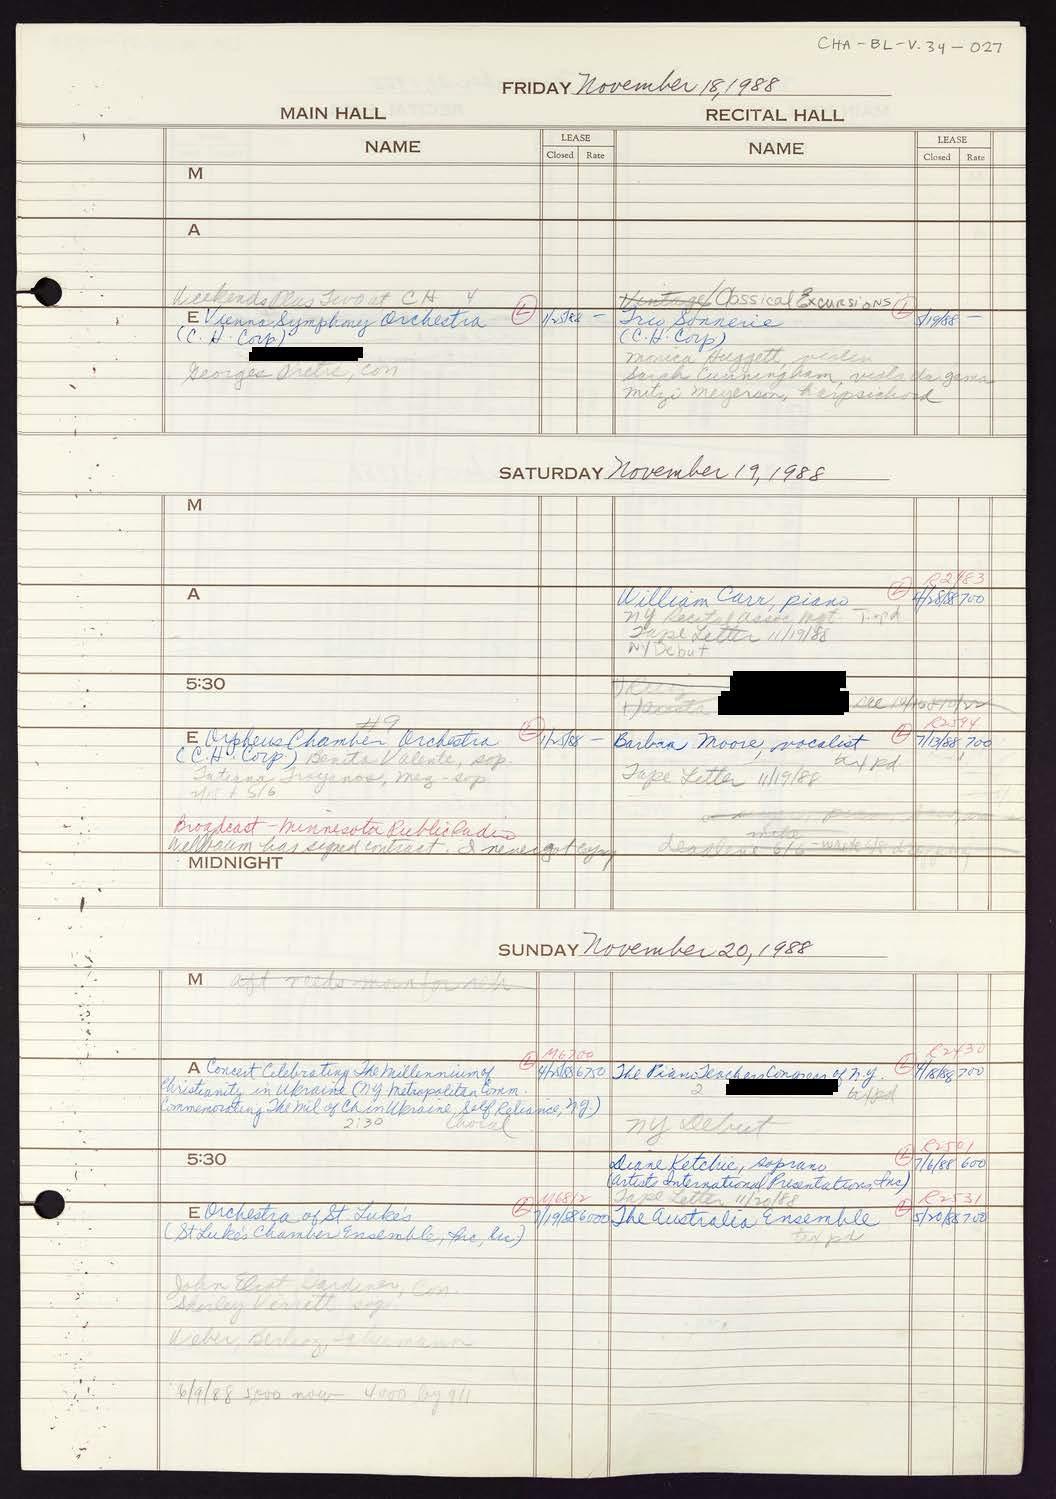 CHA-BL-V.34-027
FRIDAY November 18, 1988
MAIN HALL
RECITAL HALL
NAME
LEASE
Closed Rate
NAME
LEASE
Closed Rate
M
A
Weekends Plus Two at CH 4
E Vienna Symphony Orchestra (L) 1/25/88 —
(C.H. Corp)
Georges Pretre, con
Vintage/Classical Excursions (L)
Trio Sonnerie 5/19/88 —
(C.H. Corp)
Monica Huggett, violin
Sarah Cunningham, viola da gamba
Mitzi Meyerson, harpsichord
SATURDAY November 19, 1988
M
A
R2483
William Carr, piano (L) 4/28/88 700
NY Recital Assoc Mgt.
Tape Letter 11/19/88
NY Debut
5:30
#9
E Orpheus Chamber Orchestra (L) 1/25/88 —
(C.H. Corp.) Benita Valente, sop.
Tatiana Troyanos, mez-sop
Broadcast - Minnesota Public Radio
has signed contract. I never got copy
R2594
Barbara Moore, vocalist (L) 7/13/88 700
tax pd
Tape Letter 11/19/88
deadline 6/6
MIDNIGHT
SUNDAY November 20, 1988
M aft needs morn for reh
M6700
A Concert Celebrating The Millennium of (L) 4/25/88 6750
Christianity in Ukraine (NY Metropolitan Comm.
Commemorating The Mil of Ch in Ukraine, Self Reliance, N.Y.)
2:30 Choral
R2430
The Piano Teachers Congress of N.Y. (L) 4/18/88 700
2 tax pd
NY Debut
5:30
R2501
Diane Ketchie, soprano (L) 7/6/88 600
(Artists International Presentations, Inc)
Tape Letter 11/20/88
M6812
E Orchestra of St Luke's (L) 7/19/88 6000
(St Luke's Chamber Ensemble, Inc,
R2531
The Australia Ensemble (L) 5/20/88 700
tax pd
John Eliot Gardiner, Con.
Shirley Verrett sop.
Weber, Berlioz, Schumann
6/9/88 5,000 now 4000 by 9/1